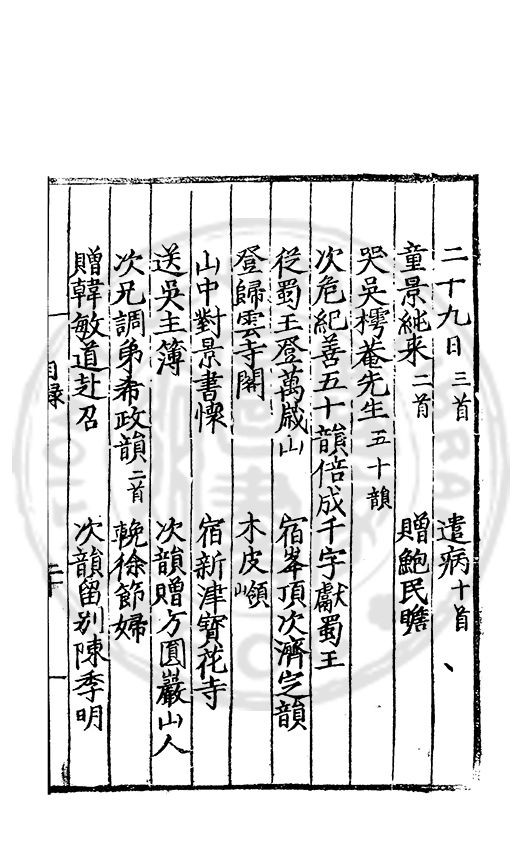 二十九日三首　遣病十首、
童景純来二首　贈鮑民瞻
哭吳樗菴先生五十韻
次危紀善五十韻倍成千字獻蜀王
從蜀王登萬歲山　宿峯頂次濟定韻
登歸雲寺閣　木皮嶺
山中對景書懷　宿新津寶花寺
送吳主簿　次韻贈方圓巖山人
次兄調弟希政韻二首　輓徐節婦
贈韓敏道赴召　次韻留別陳季明
目錄　二十